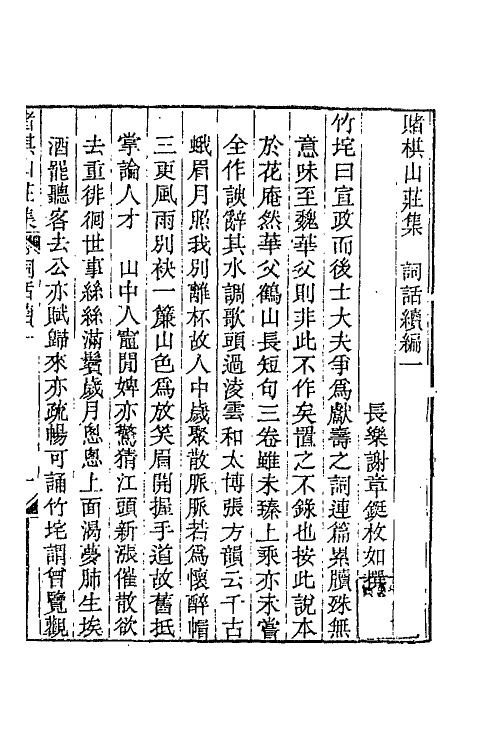 賭棋山莊集　詞話續編一
長樂謝章鋌枚如撰
竹垞曰宣政而後士大夫爭爲獻壽之詞連篇累牘殊無
意味至魏華父則非此不作矣置之不錄也按此說本
於花庵然華父鶴山長短句三卷雖未臻上乘亦未嘗
全作諛辭其水調歌頭過淩雲和太博張方韻云千古
蛾眉月照我別離杯故人中歲聚散脈脈若爲懷醉帽
三更風雨別袂一簾山色爲放笑眉開握手道故舊抵
掌論人才　山中人竈閒婢亦驚猜江頭新漲催散欲
去重徘徊世事絲絲滿鬢歲月悤悤上面渴夢肺生埃
酒罷聽客去公亦賦歸來亦疏暢可誦竹垞謂曾覽觀
賭棋山莊集　詞話續一